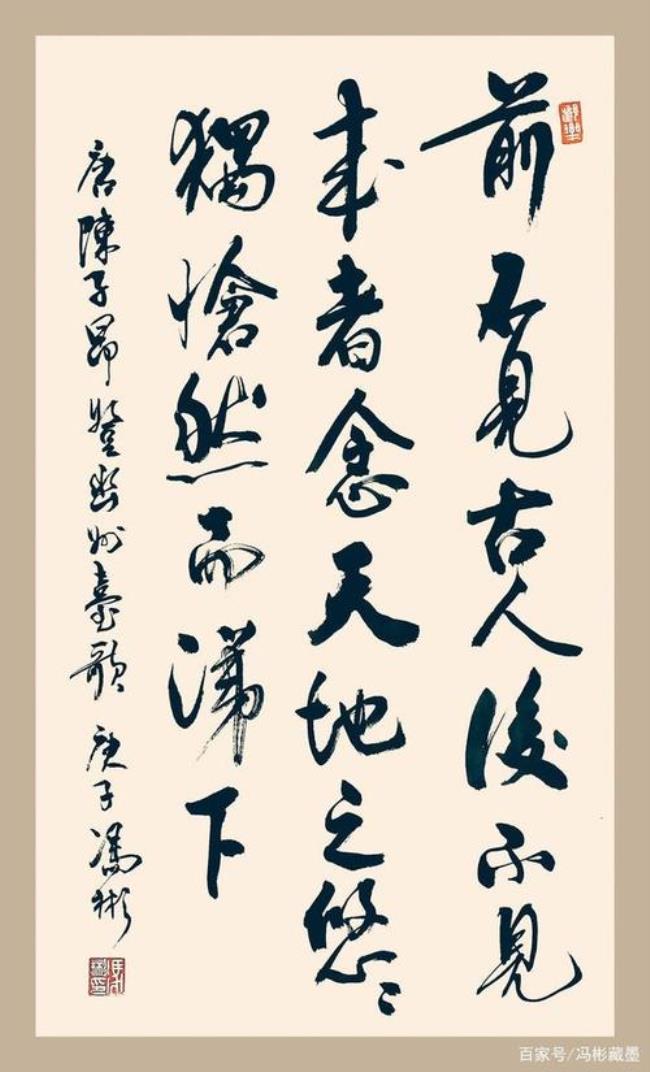 前不見古人後不見
来者念天地之悠〻
獨愴然而涕下
唐陳子昂登幽州臺歌 庚子馮彬
百家号/冯彬藏墨